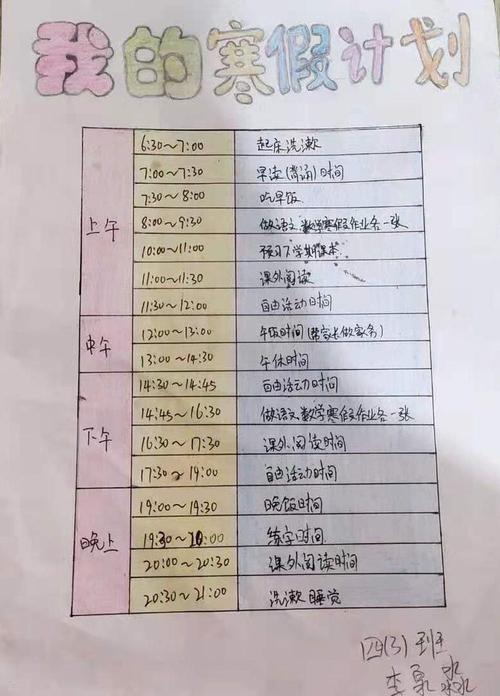 我的寒假计划
上午
6:30~7:00 起床洗漱
7:00~7:30 早读(背诵)时间
7:30~8:00 吃早饭
8:00~9:30 做语文数学寒假作业各一张
10:00~11:00 预习下学期课本
11:00~11:30 课外阅读
11:30~12:00 自由活动时间
中午
12:00~13:00 午饭时间(帮家长做家务)
13:00~14:30 午休时间
下午
14:30~14:45 自由活动时间
14:45~16:30 做语文数学寒假作业各一张
16:30~17:30 课外阅读时间
17:30~19:00 自由活动时间
晚上
19:00~19:30 晚饭时间
19:30~20:00 练字时间
20:00~20:30 课外阅读时间
20:30~21:00 洗漱睡觉
四(3)班
李